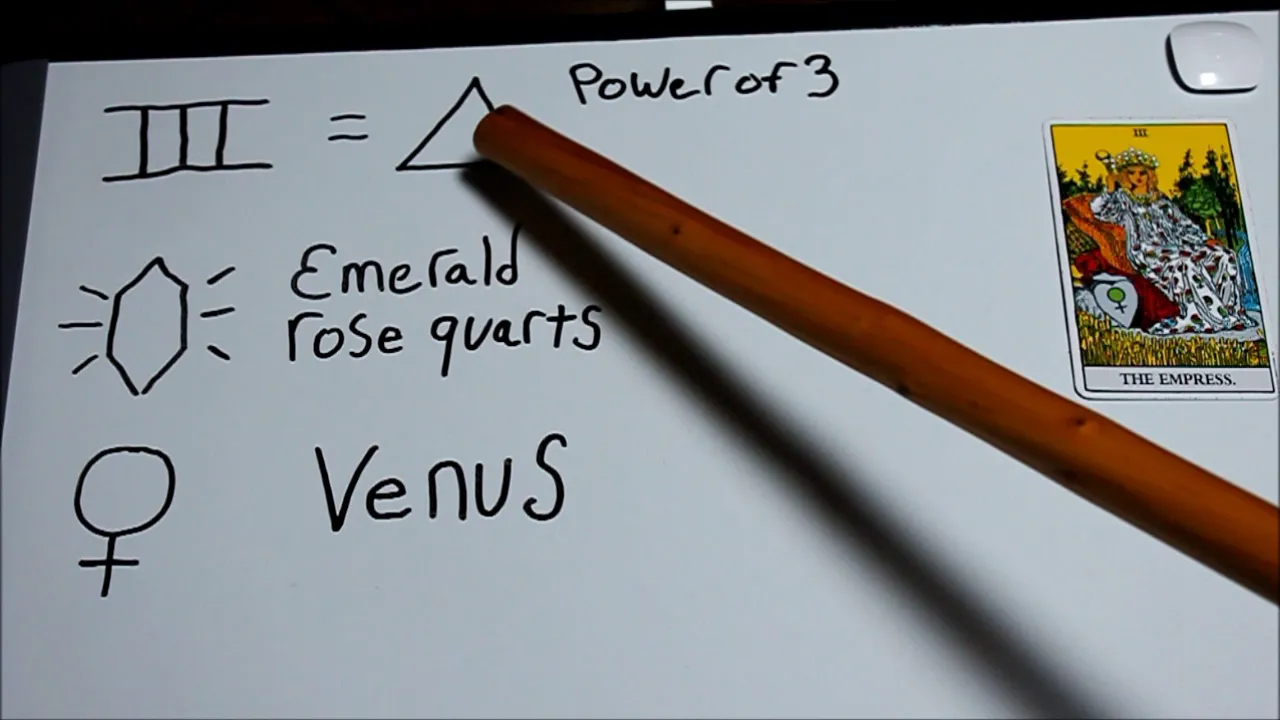 III = Power of 3
III
Emerald
rose quarts
THE EMPRESS.
Venus